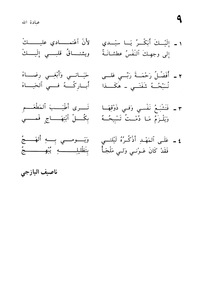 عبادة الله
٩
١ - إِلَيْكَ أُبَكِّرُ يَا سَيِّدِي لأَنَّ اعْتِمَادِي عَلَيْكَ
إِلَى وَجْهِكَ النَّفْسُ عَطْشَانَةٌ وَيَشْتَاقُ قَلْبِي إِلَيْكَ
٢ - أُفَضِّلُ رَحْمَةَ رَبِّي عَلَى حَيَاتِي وَأَبْغِي رِضَاهْ
تُسَبِّحُهُ شَفَتِي - هٰكَذَا أُبَارِكُهُ فِي الْحَيَاهْ
٣ - فَتَشْبَعُ نَفْسِيَ فِي ذَوْقِهَا تَرَى أَطْيَبَ الْمَطْعَمِ
وَيَفْرَحُ مَا دُمْتُ تَسْبِيحُهُ بِكُلِّ ابْتِهَاجٍ فَمِي
٤ - عَلَى الْمَهْدِ أَذْكُرُهُ لَيْلَتِي وَيَوْمِي بِهِ أَلْهَجُ
فَقَدْ كَانَ عَوْنِي وَلِي مَلْجَأً بِتَظْلِيلِهِ أَبْهَجُ
ناصيف اليازجي